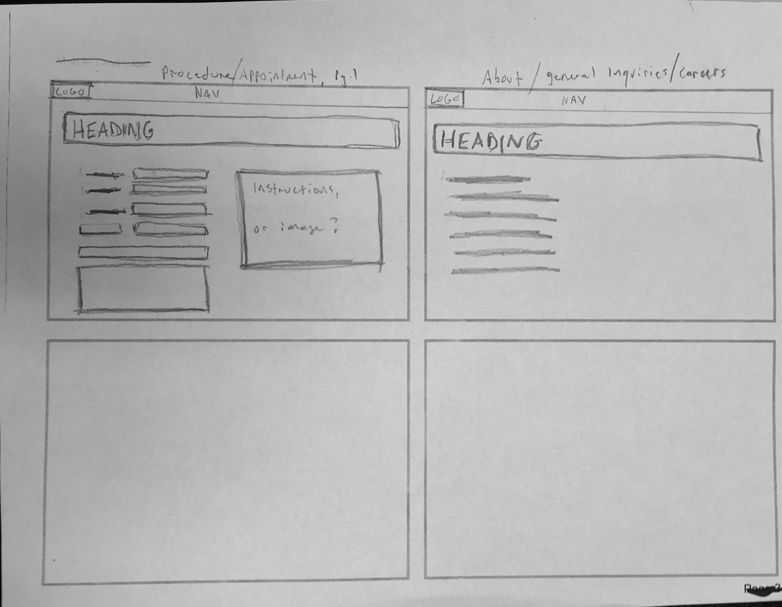 Procedure/Appointment, Pg.1
LOGO
NAV
HEADING
Instructions,
or image?
About / general Inquiries/Careers
LOGO
NAV
HEADING